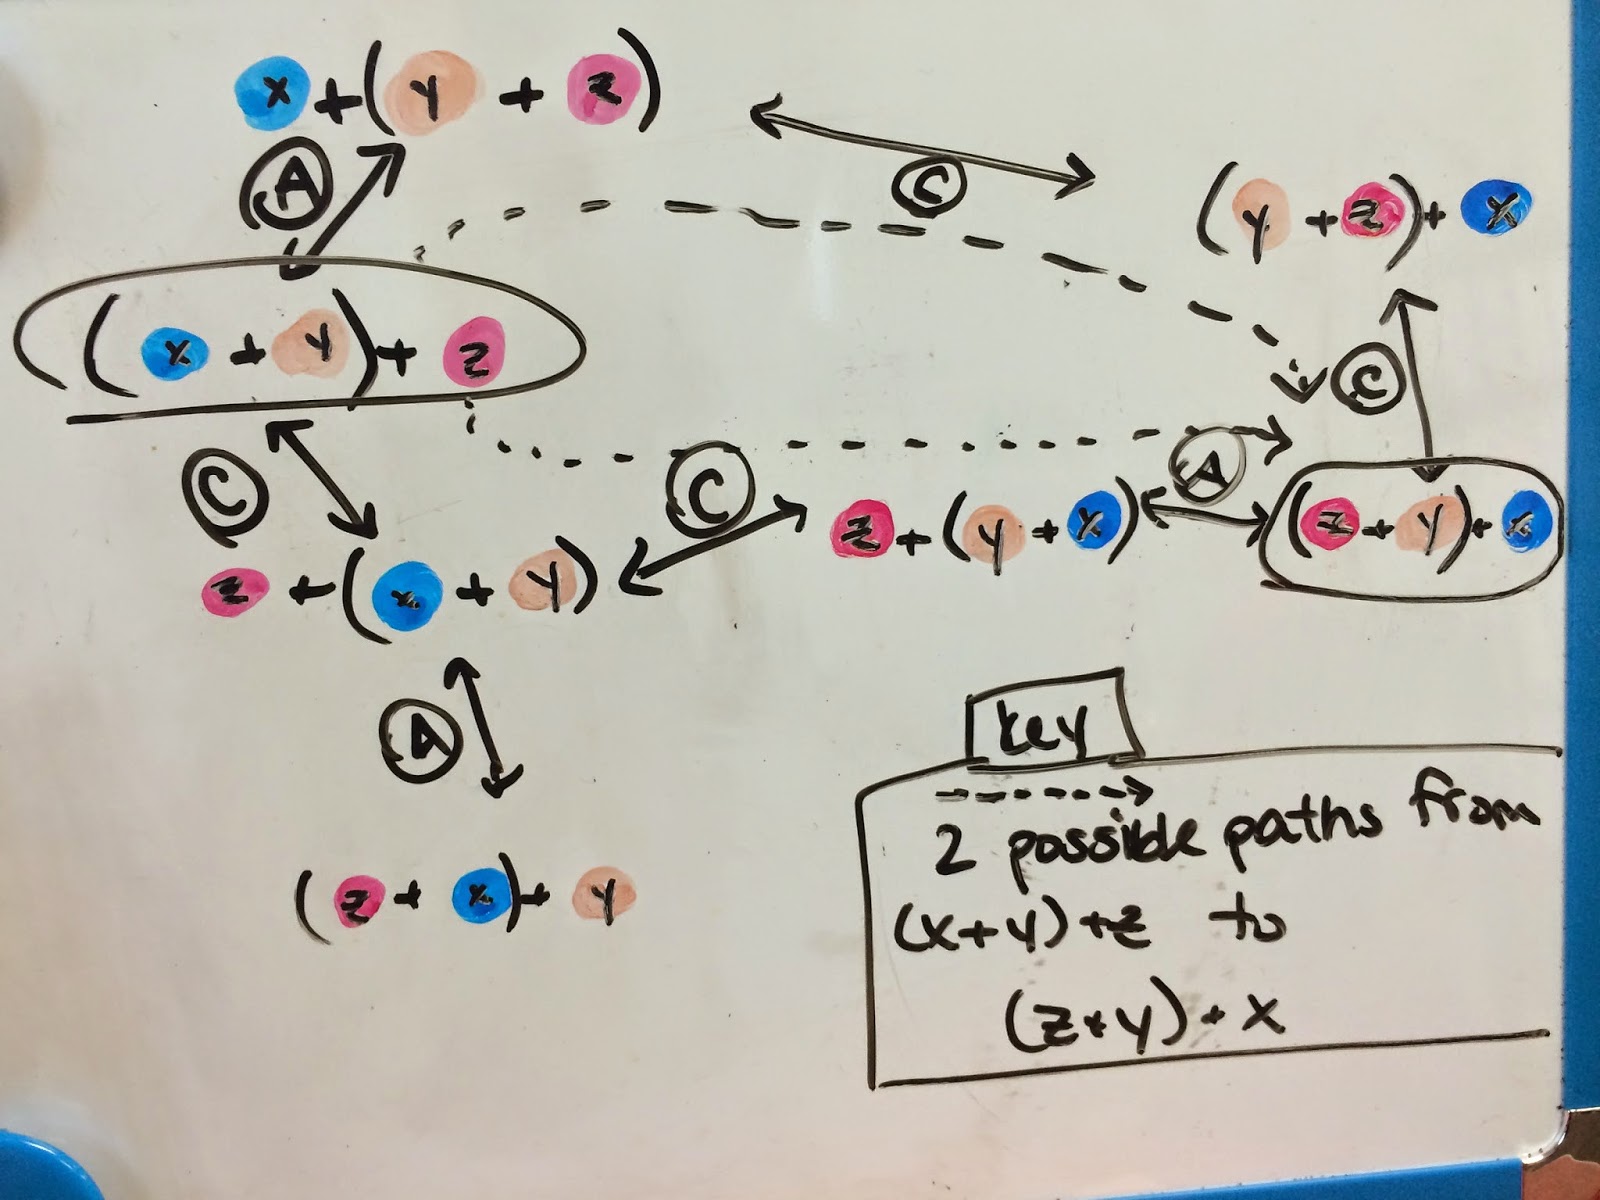 x + (y + z)
C
(y + z) + x
A
(x + y) + z
C
C
C
A
z + (y + x)
(z + y) + x
z + (x + y)
A
(z + x) + y
key
2 possible paths from
(x + y) + z to
(z + y) + x